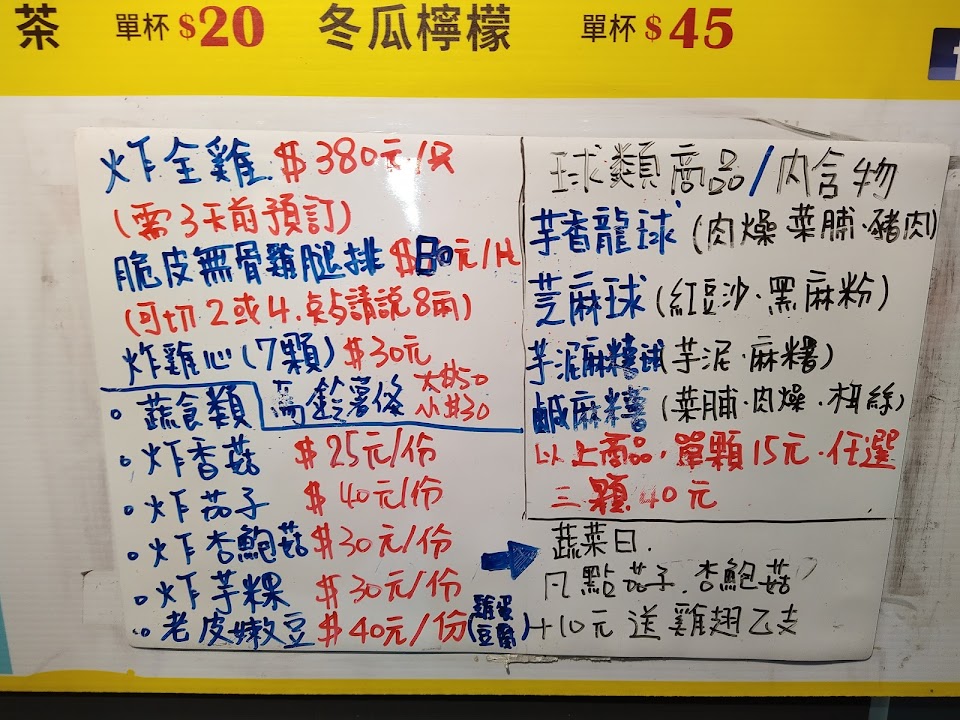 茶 單杯 $20 冬瓜檸檬 單杯 $45
炸全雞 $380元/只
(需3天前預訂)
脆皮無骨雞腿排 $80元/片
(可切2或4.點請說8兩)
炸雞心(7顆) $30元
馬鈴薯條 大$50
小$30
• 蔬食類
• 炸香菇 $25元/份
• 炸茄子 $40元/份
• 炸杏鮑菇 $30元/份
• 炸芋粿 $30元/份
• 老皮嫩豆 $40元/份 (雞蛋豆腐)
球類商品/內含物
芋香龍球 (肉燥 菜脯·豬肉)
芝麻球 (紅豆沙·黑麻粉)
芋泥麻糬 芋泥·麻糬)
鹹麻糬 (菜脯·肉燥·絲)
以上商品,單顆15元·任選
三顆40元
蔬菜日.
凡點茄子.杏鮑菇
+10元送雞翅乙支